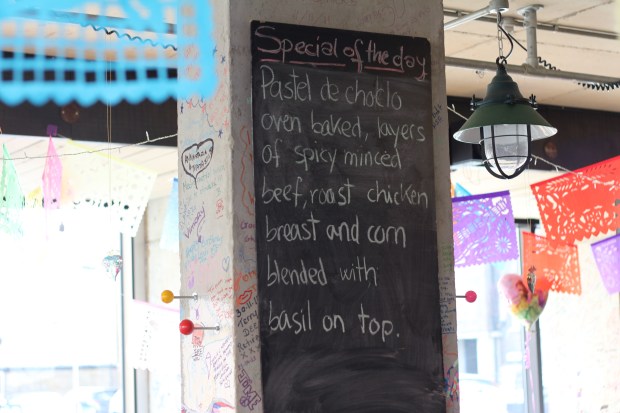 Special of the day
Pastel de choclo
oven baked, layers
of spicy minced
beef, roast chicken
breast and corn
blended with
basil on top.